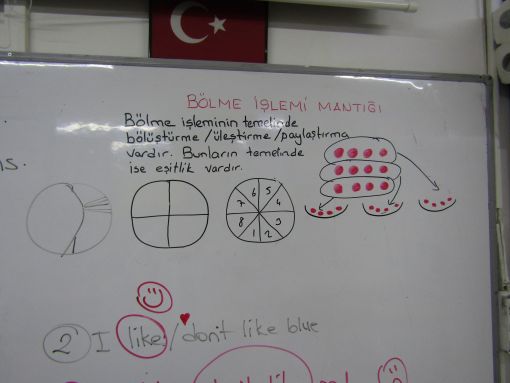 BÖLME İŞLEMİ MANTIĞI
Bölme işleminin temelinde
bölüştürme / üleştirme / paylaştırma
vardır. Bunların temelinde
ise eşitlik vardır.
6 5
7 4
8 3
1 2
2 I like / don't like blue